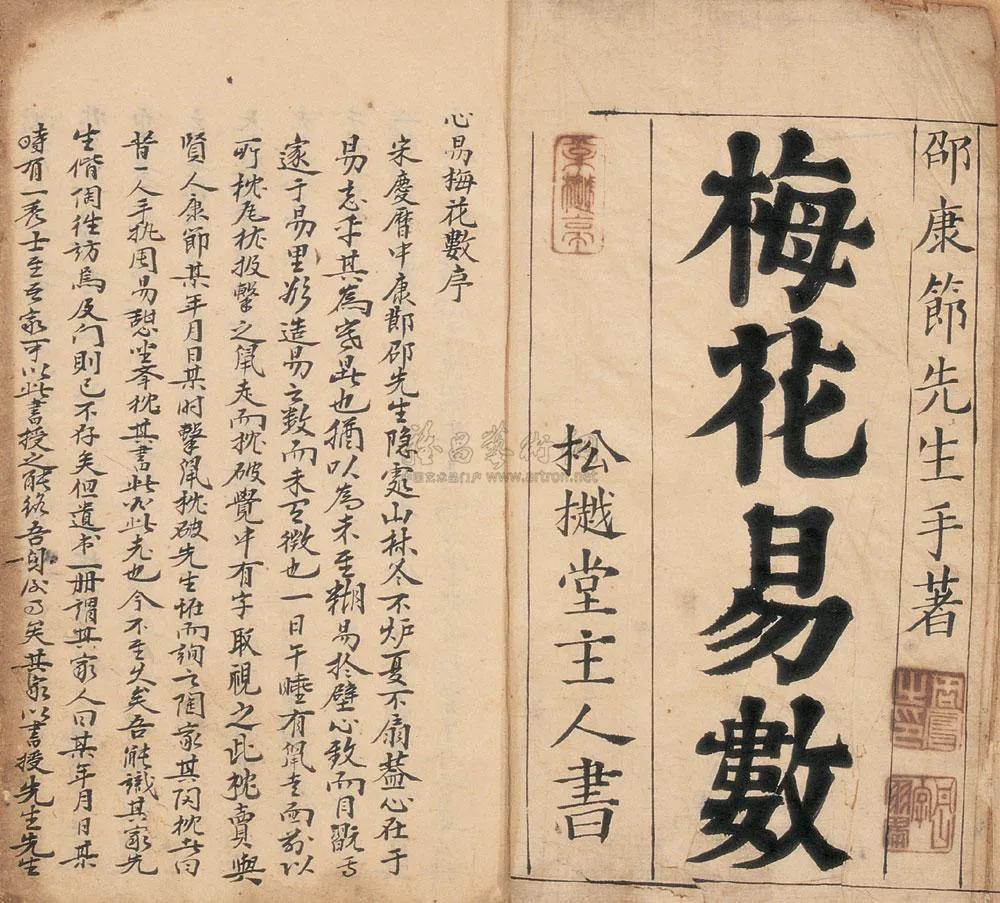 邵康節先生手著
梅花易數
松樾堂主人書
心易梅花數序
宋慶曆中康節邵先生隐處山林冬不炉夏不扇蓋心在于
易忘乎其為寒暑也猶以為未至糊易於壁心致而目翫焉
邃于易里欲造易之數而未有徵也一日午睡有鼠走而前以
所枕瓦枕投擊之鼠走而枕破覺中有字取視之此枕賣與
賢人康節某年月日某时擊鼠枕破先生恠而詢之陶家其陶枕者曰
昔一人手执周易憩坐舉枕其書此必此老也今不至久矣吾能識其家先
生偕陶往訪焉及门則已不存矣但遺书一册謂其家人曰某年月日某
時有一秀士至吾家可以此書授之能終吾身後事矣其家以書授先生先生
雅昌藝術
中国艺术品门户 www.artron.net